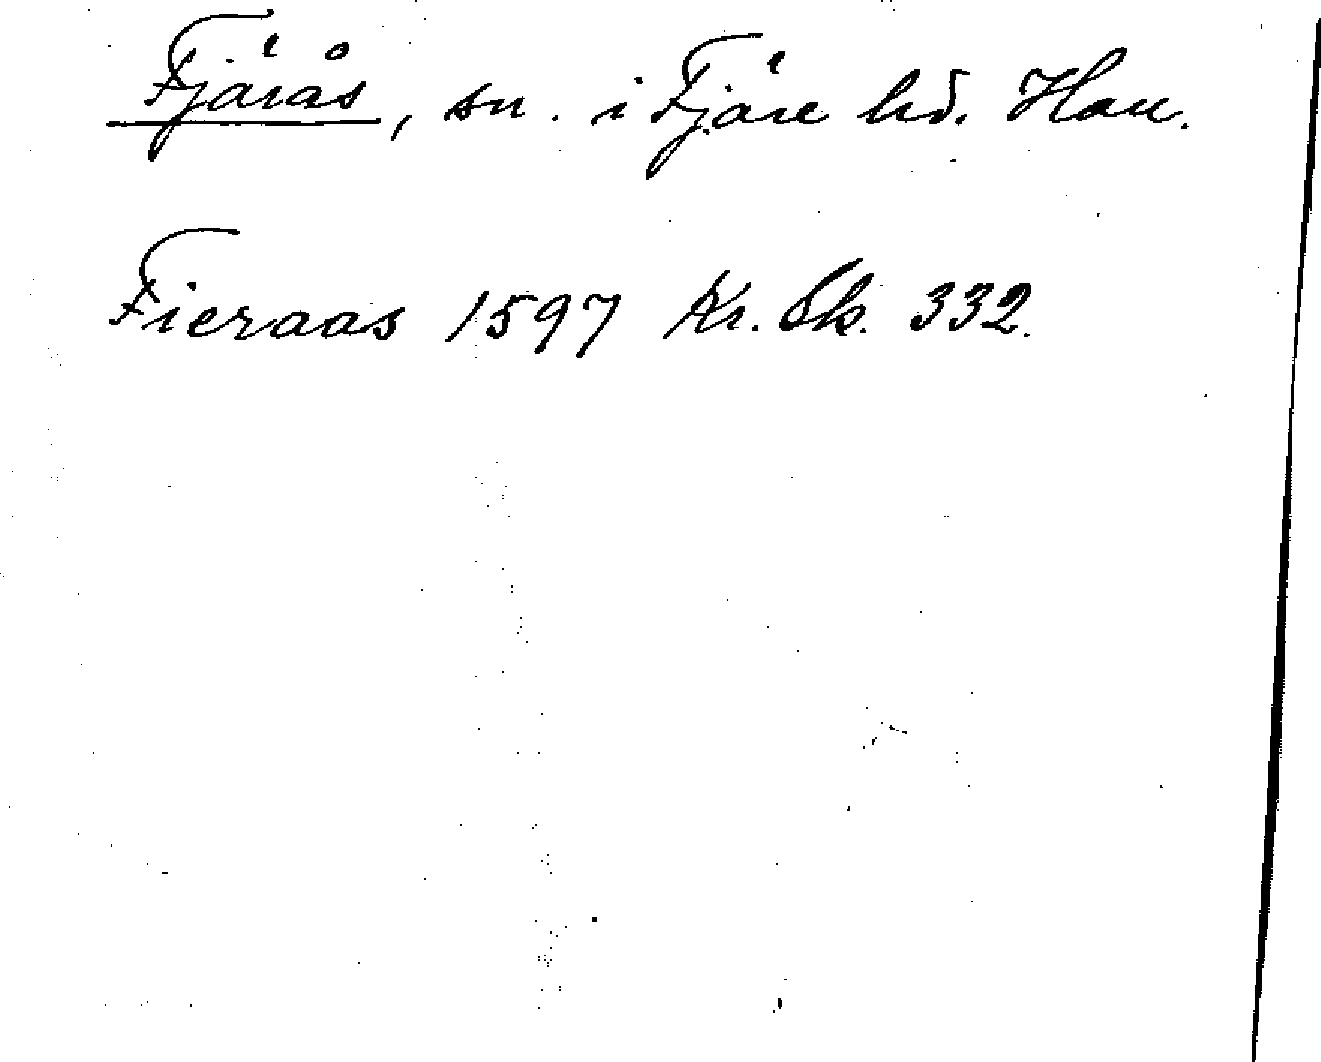 Fjärås, sn. i Fjäre hd. Hall.
Fieraas 1597 Kr. Sk. 332.